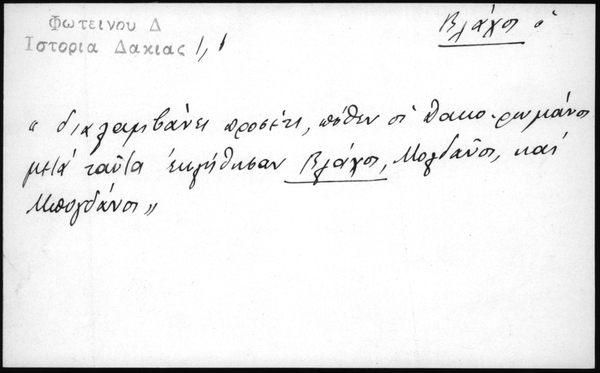 Φωτεινου Δ
Ιστορια Δακιας 1, 1
Βλάχοι ὁ
« διαλαμβάνει προσέτι, πόθεν οἱ Θακο-ρωμάνοι
μετὰ ταῦτα ἐκλήθησαν Βλάχοι, Μολδαῦοι, καὶ
Μπογδάνοι »